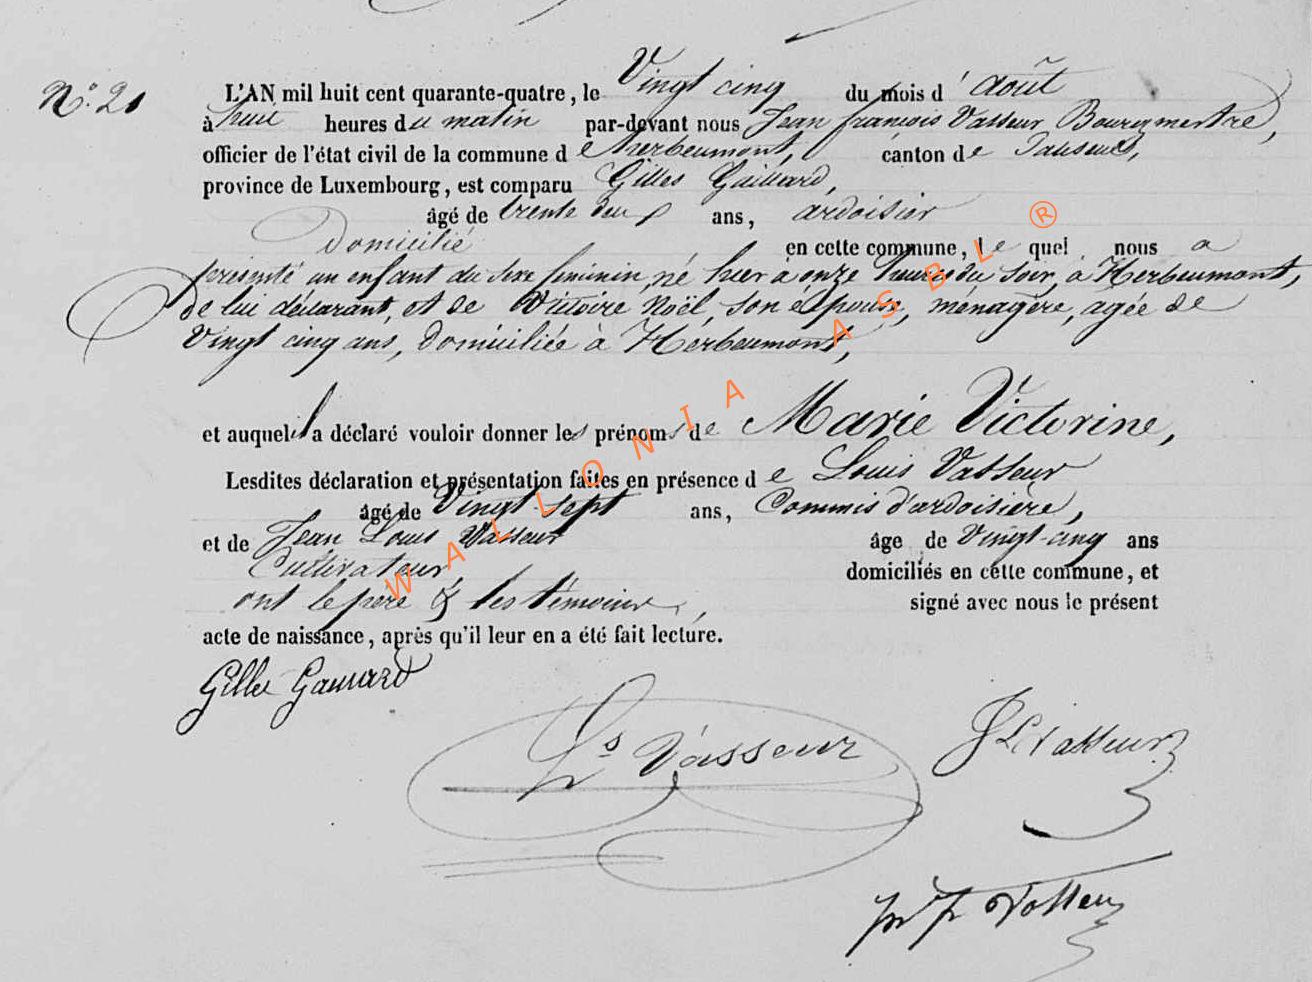 N.° 21
L'AN mil huit cent quarante-quatre, le Vingt cinq du mois d'août
à huit heures du matin par-devant nous Jean françois Vasseur Bourgmestre,
officier de l'état civil de la commune de herbeumont, canton de Paliseul,
province de Luxembourg, est comparu Gilles Gaillard,
âgé de trente deux ans, ardoisier
Domicilié en cette commune, le quel nous a
présenté un enfant du sexe féminin, né hier à onze heures du soir, à Herbeumont,
de lui déclarant, et de Victoire Noël, son épouse, ménagère, agée de
Vingt cinq ans, domiciliée à Herbeumont,
et auquel il a déclaré vouloir donner les prénoms de Marie Victorine,
Lesdites déclaration et présentation faites en présence de Louis Vasseur
âgé de Vingt-sept ans, Commis d'ardoisière,
et de Jean Louis Vasseur âge de Vingt-cinq ans
Cultivateur, domiciliés en cette commune, et
ont le père & les témoins, signé avec nous le présent
acte de naissance, après qu'il leur en a été fait lecture.
Gilles Gaillard
Ls Vasseur
JL Vasseur
Vasseur
WALLONIA ASBL ®